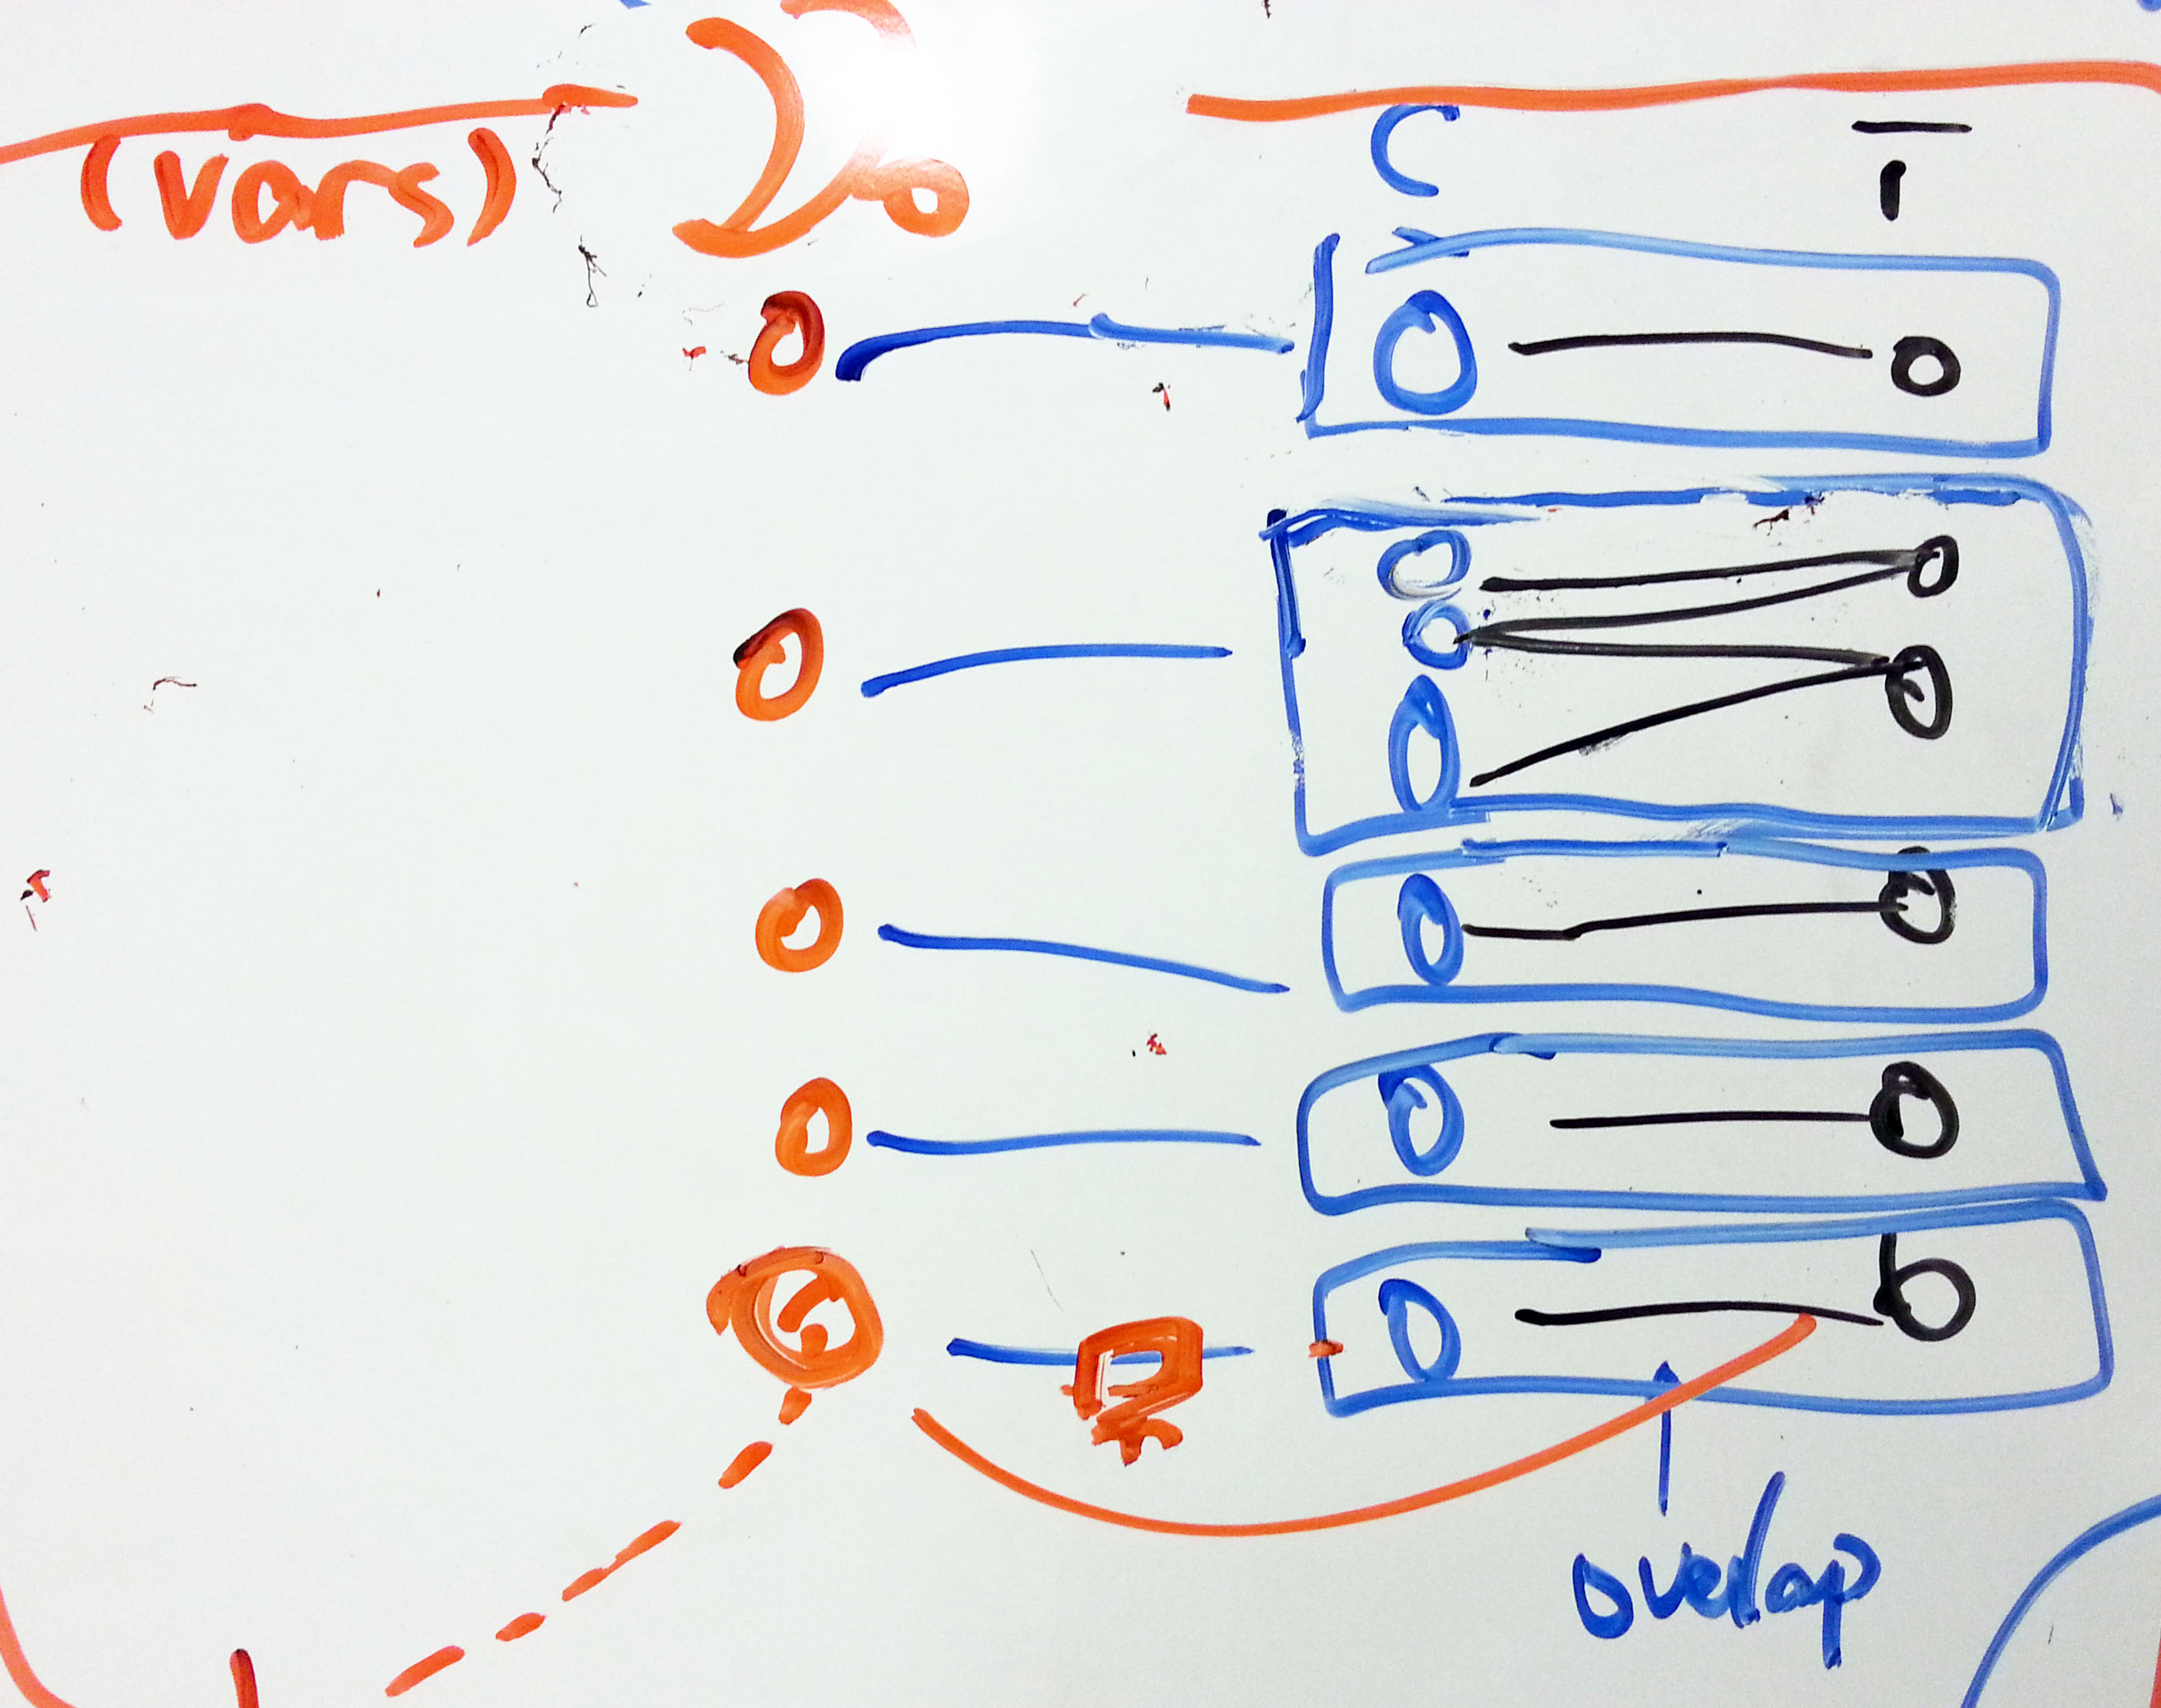 (vars)
C
overlap